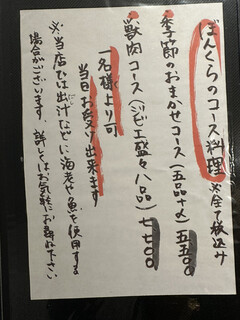 ぼんくらのコース料理 ※全て税込み
季節のおまかせコース(五品十〆)五五〇〇
獣肉コース(ジビエ盛々八品)七七〇〇
一名様より可
当日お受け出来ます
※当店では出汁などに海老や魚を使用する
場合がございます。詳しくはお気軽にお尋ね下さい